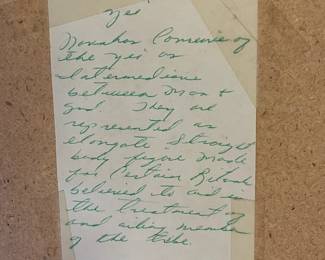 Yei
Navahos Conceive of
the yei as
Intermediaries
between Man &
God. They are
represented as
elongate straight
body figure made
for Certain Rituals
believed to aid in
the treatment of
and ailing member
of the tribe.